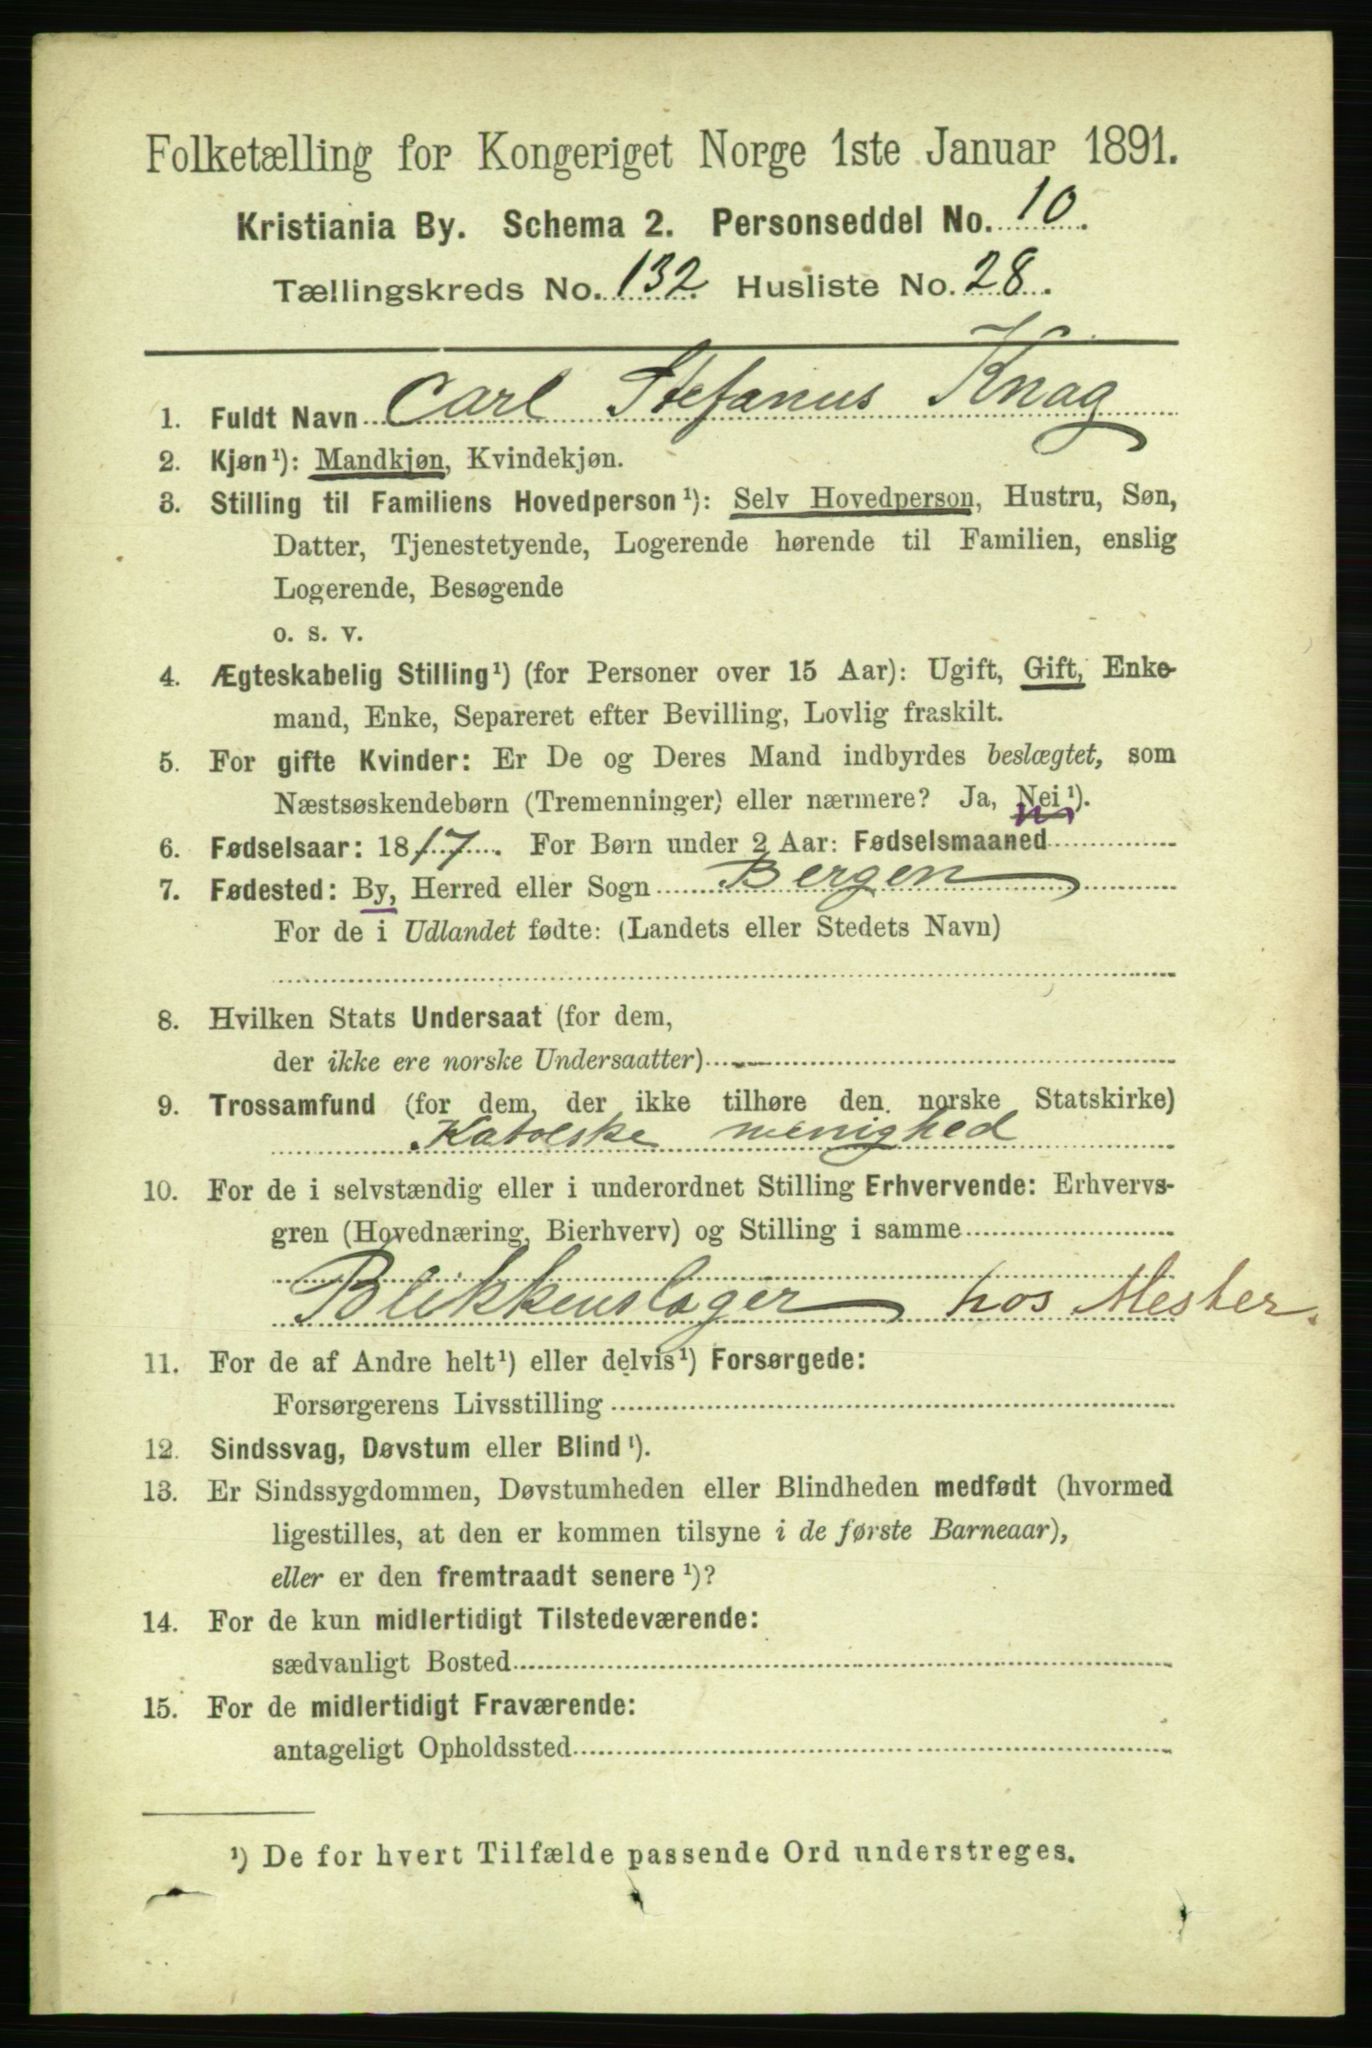 Folketælling for Kongeriget Norge 1ste Januar 1891.
Kristiania By. Schema 2. Personseddel No. 10.
Tællingskreds No. 132 Husliste No. 28.
1. Fuldt Navn Carl Stefanus Knag
2. Kjøn¹): Mandkjøn, Kvindekjøn.
3. Stilling til Familiens Hovedperson¹): Selv Hovedperson, Hustru, Søn,
Datter, Tjenestetyende, Logerende hørende til Familien, enslig
Logerende, Besøgende
o. s. v.
4. Ægteskabelig Stilling¹) (for Personer over 15 Aar): Ugift, Gift, Enke-
mand, Enke, Separeret efter Bevilling, Lovlig fraskilt.
5. For gifte Kvinder: Er De og Deres Mand indbyrdes beslægtet, som
Næstsøskendebørn (Tremenninger) eller nærmere? Ja, Nei¹).
6. Fødselsaar: 1817. For Børn under 2 Aar: Fødselsmaaned
7. Fødested: By, Herred eller Sogn Bergen
For de i Udlandet fødte: (Landets eller Stedets Navn)
8. Hvilken Stats Undersaat (for dem,
der ikke ere norske Undersaatter)
9. Trossamfund (for dem, der ikke tilhøre den norske Statskirke)
Katolske menighed
10. For de i selvstændig eller i underordnet Stilling Erhvervende: Erhvervs-
gren (Hovednæring, Bierhverv) og Stilling i samme
Blikkenslager hos Mester.
11. For de af Andre helt¹) eller delvis¹) Forsørgede:
Forsørgerens Livsstilling
12. Sindssvag, Døvstum eller Blind¹).
13. Er Sindssygdommen, Døvstumheden eller Blindheden medfødt (hvormed
ligestilles, at den er kommen tilsyne i de første Barneaar),
eller er den fremtraadt senere¹)?
14. For de kun midlertidigt Tilstedeværende:
sædvanligt Bosted
15. For de midlertidigt Fraværende:
antageligt Opholdssted
¹) De for hvert Tilfælde passende Ord understreges.